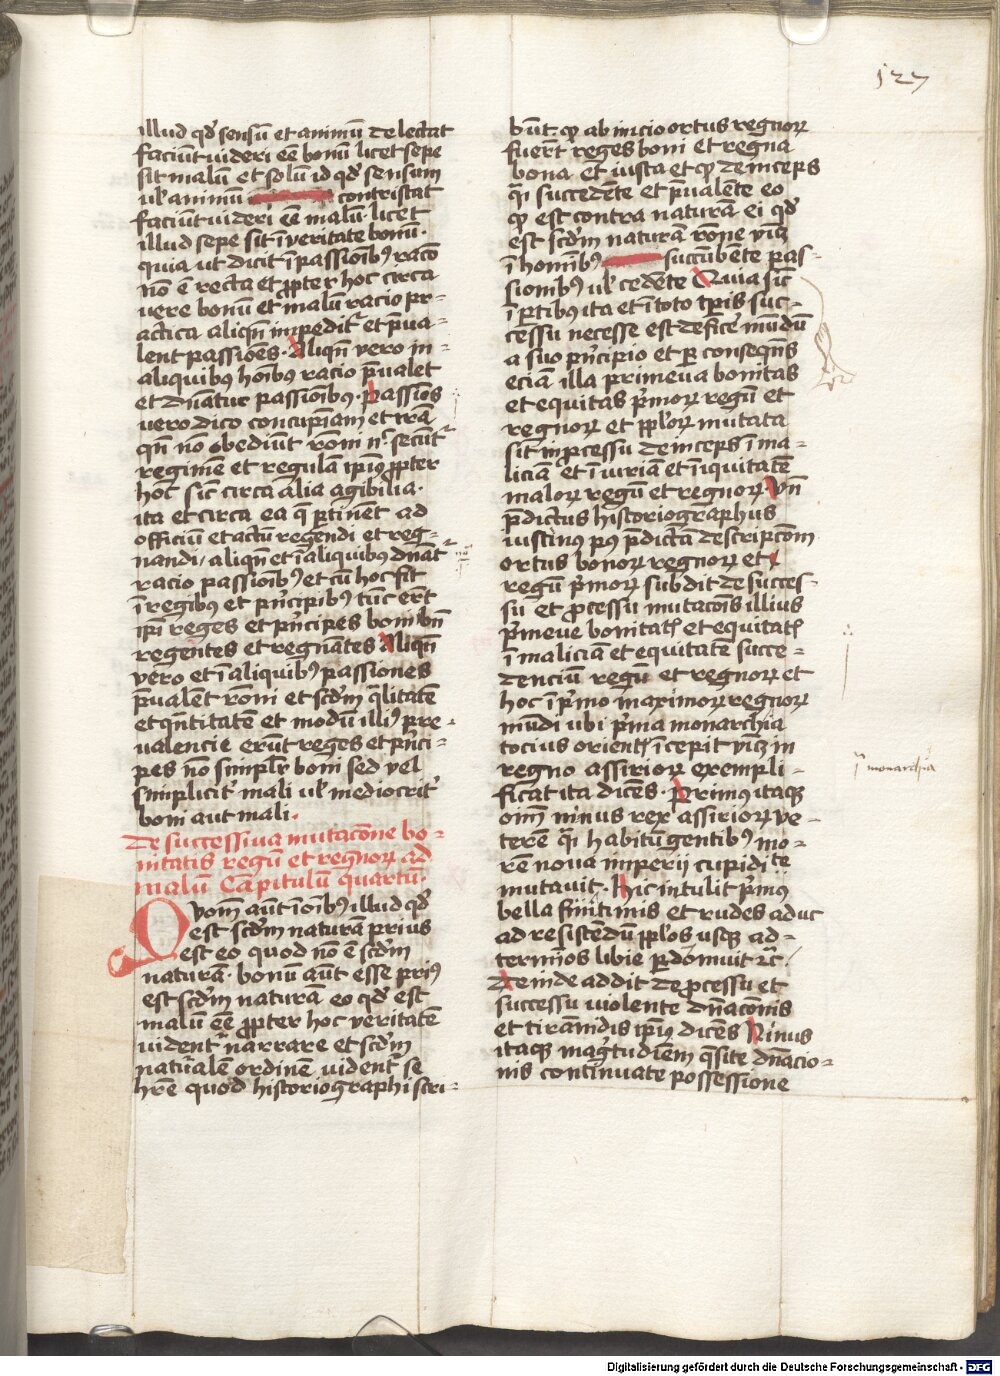 127
illud qd̄ sensū et animū delectat
faciūt uideri eē bonū licet sepe
sit malū et solū id qd̄ sensum
ul̓ animū contristat
faciūt uideri eē malū licet
illud sepe sit ī veritate bonū.
quia ut dicit ī passioīb⁹ raco
nō ē recta et ꝓpter hoc circa
vere bonū et malū racio pr-
actica aliqn̄ impedit᷑ et p̄ua-
lent passiōes. Aliqn̄ vero in-
aliquibus hoīb⁹ racio p̄ualet
et dn̄atur passioīb⁹. passiōes
vero dico concupīam et irā
qn̄ nō obediūt rōni nec̄ secūt᷑
regimē et regulā ip̄i⁹ ꝓpter
hoc̄ sic̄ circa alia agibilia.
ita et circa ea q̄ ꝑtinēt ad
officiū et actū regendi et reg-
nandi / aliqn̄ et ī aliquibus dn̄at᷑
racio passioīb⁹ et cū hoc sit
ī regibus et pn̄cipibus tūc erūt
ip̄i reges et pn̄cipes boni bn̄
regentes et regnātes Aliqn̄
vero et ī aliquib⁹ passiones
p̄ualēt rōni et scd̄m q̄litatē
et q̄ntitatē et modū illi⁹ pre-
ualencie erūt reges et pn̄ci-
pes nō simpl̓r boni sed vel
simplicit̓ mali ul̓ mediocrit̓
boni aut mali.
De successiua mutacōne bo-
nitatis regū et regnoꝝ ad
malū Capitulū quartū.
Quom̄ aūt ī oīb⁹ illud qd̄
est scd̄m naturā prius
est eo quod nō ē scd̄m
naturā. bonū aūt esse pri⁹
est scd̄m naturā eo qd̄ est
malū eē ꝓpter hoc veritatē
vident᷑ narrare et scd̄m
naturalē ordinē vident᷑ se
hr̄e quod historiographi scri-
būt. qꝫ ab inicio ortus regnoꝝ
fuerūt reges boni et regna
bona et iusta et qꝫ deinceps
q̄i succedēte et p̄ualēte eo
qꝫ est contra naturā ei qd̄
est scd̄m naturā rōne viꝫ
ī hoīnib⁹ succūbēte pas-
sionibus ul̓ cedēte Quia sic̄
ī ꝑtibus ita et ī toto tꝑis suc-
cessu necesse est deficē mūdū
a suo pn̄cipio et ꝑ conseqn̄s
eciā illa primeua bonitas
et equitas p̄moꝝ regū et
regnoꝝ et ppl̓oꝝ mutata
sit in ꝓcessu deinceps ī ma-
liciā et ī iuriā et īiquitatē
maloꝝ regū et regnoꝝ. Vn̄
p̄dictus historiographus
iustinus p⁹ p̄dictā descripcōm
ortus bonoꝝ regnoꝝ et
regū p̄moꝝ subdit de succes-
su et ꝓcessu mutacōis illius
p̄meue bonitatꝭ et equitatꝭ
ī maliciā et equitatē succe-
denciū regū et regnoꝝ et
hoc ī p̄mo maximoꝝ regnoꝝ
mūdi ubi p̄ma monarchia
tocius orientꝭ īcepit viꝫ in
regno assirioꝝ exempli-
ficat ita dicēs. Primus itaqꝫ
oīm ninus rex assirioꝝ ve-
terē q̄i habitū gentibus mo-
rē noua imperij cupiditate
mutauit. hic intulit p̄mus
bella finitimis et rudes adhuc
ad resistēdū ppl̓os usqꝫ ad-
terminos libie ꝑdomuit ꝛc̄.
Deinde addit de ꝓcessu et
successu violente dn̄acōnis
et tirānidis ip̄i⁹ dicēs Ninus
itaqꝫ magtudīem q̄site dn̄acio-
nis continuate possessione
monarchia
Digitalisierung gefördert durch die Deutsche Forschungsgemeinschaft - DFG